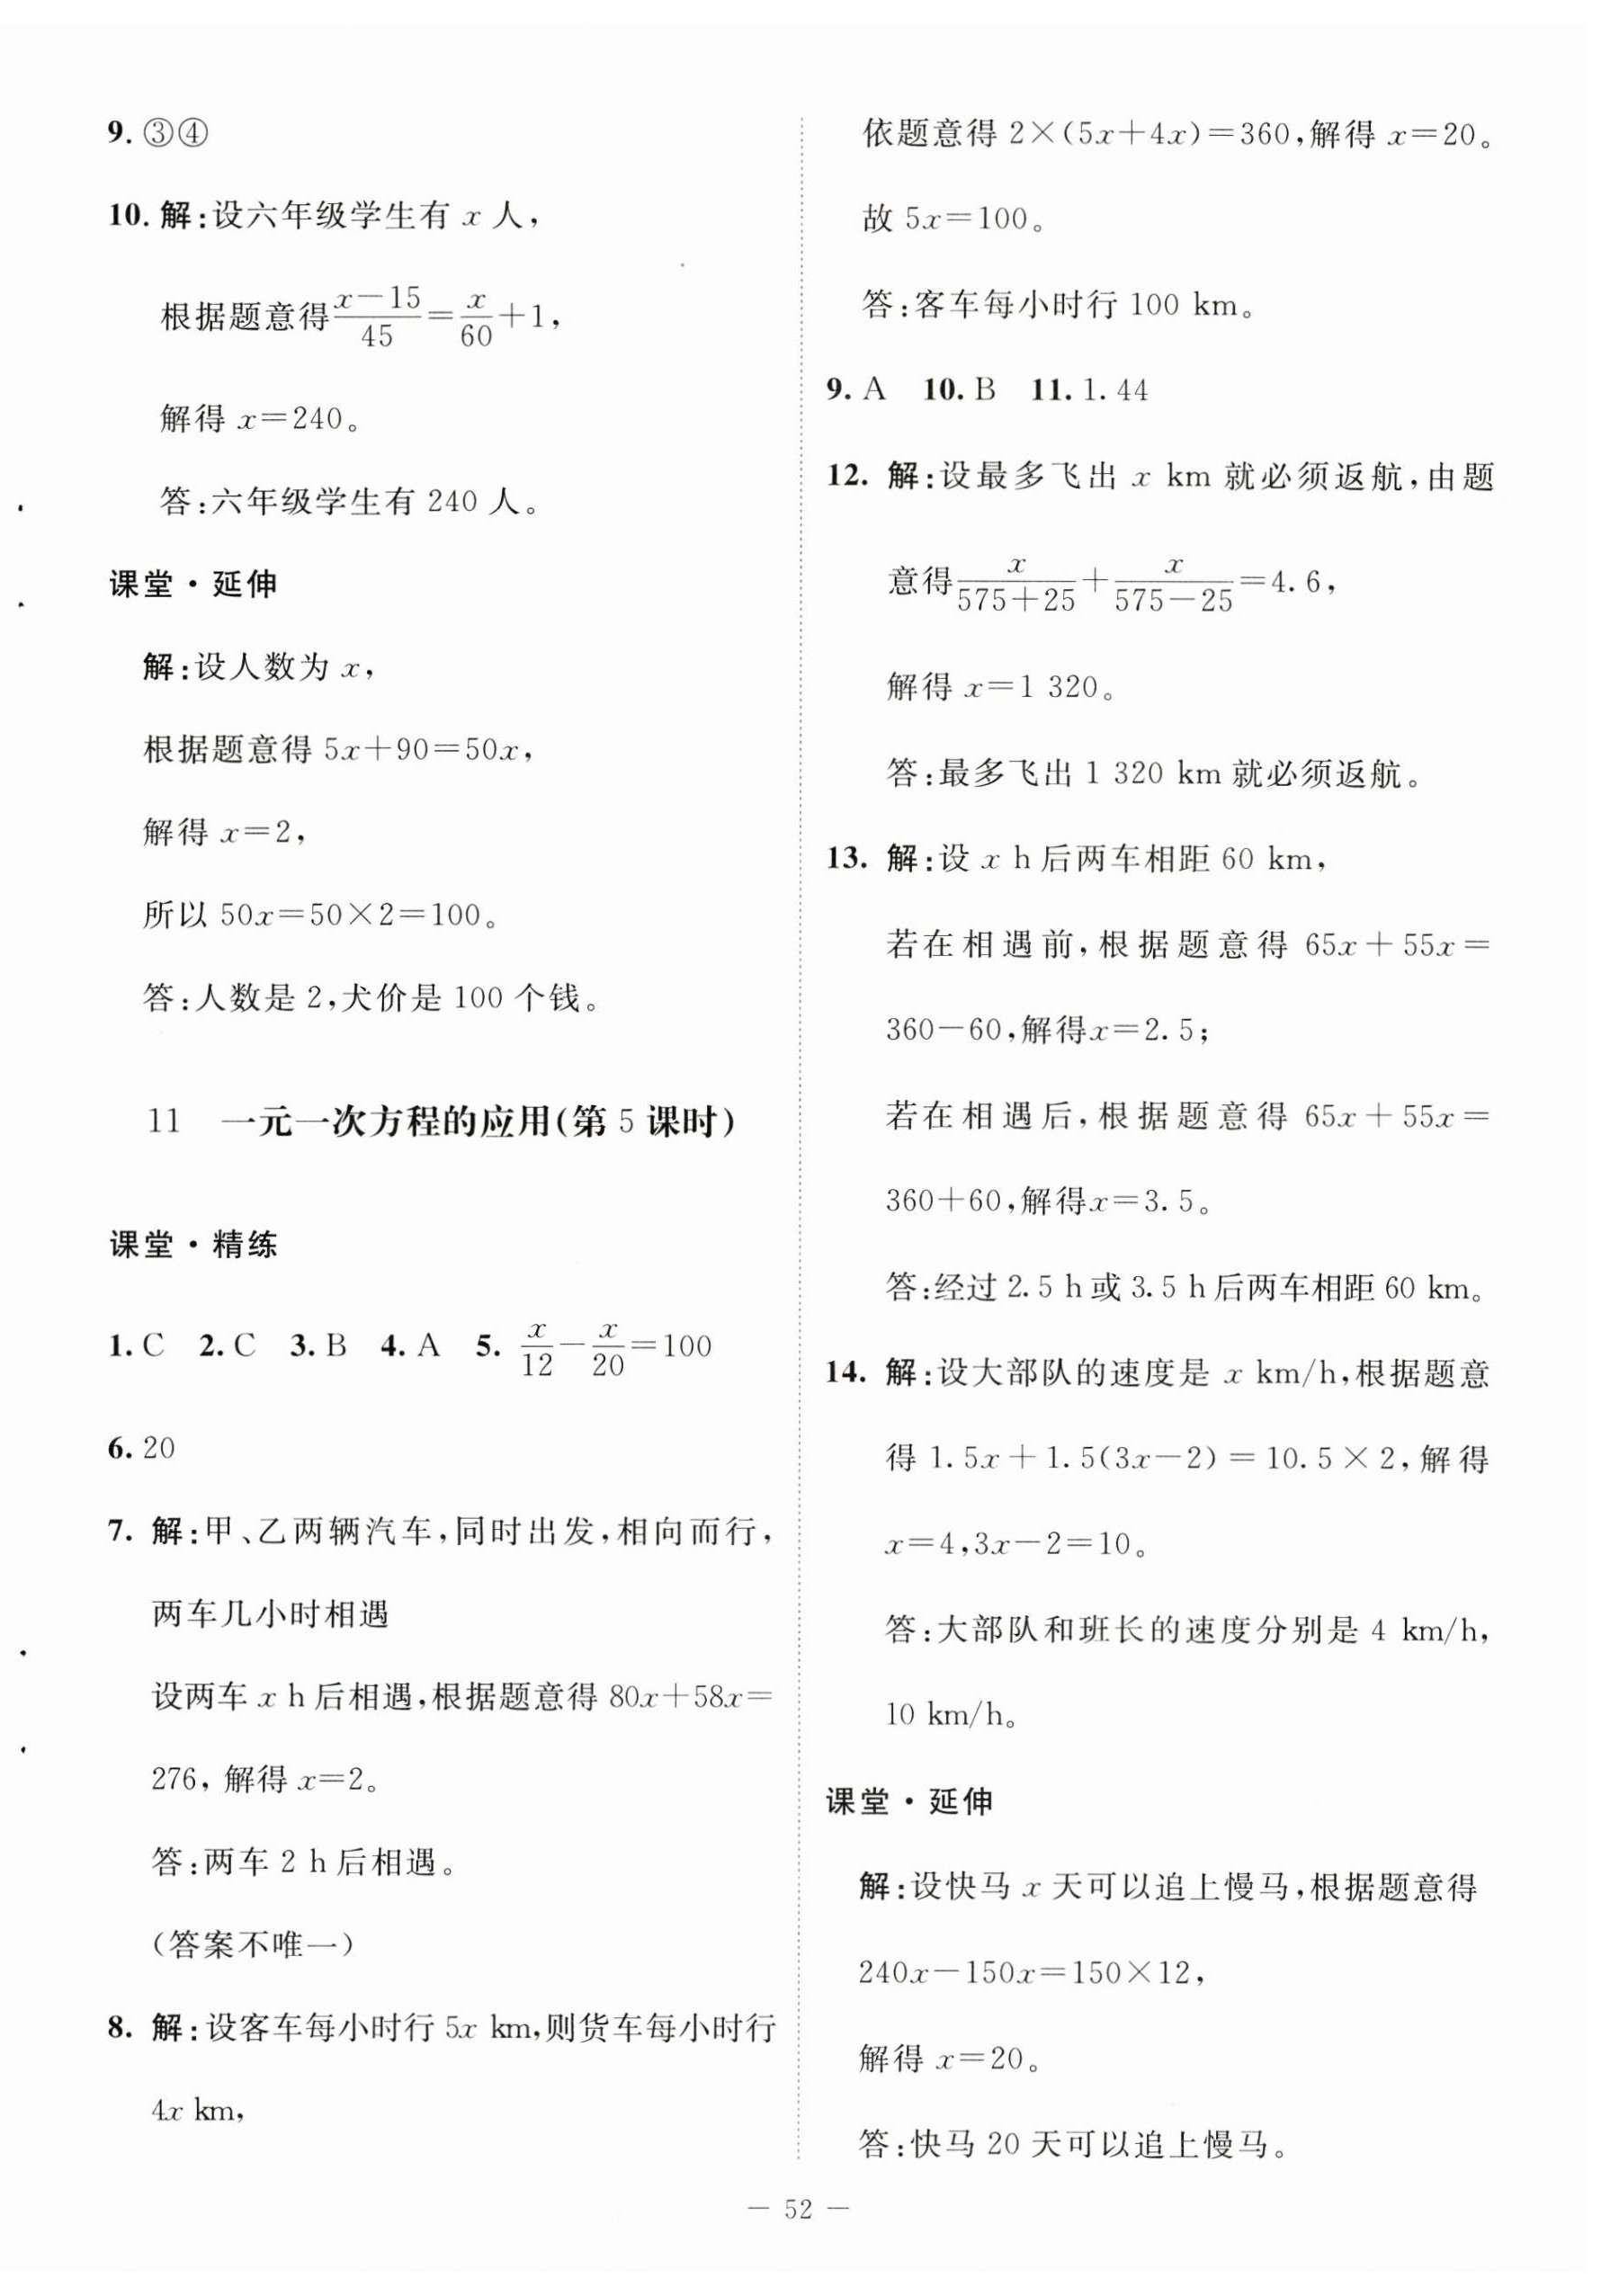 9. ③④
10. 解:设六年级学生有 x 人,
根据题意得 \frac{x-15}{45}=\frac{x}{60}+1,
解得 x=240。
答:六年级学生有 240 人。
课堂·延伸
解:设人数为 x,
根据题意得 5x+90=50x,
解得 x=2,
所以 50x=50×2=100。
答:人数是 2,犬价是 100 个钱。
11 一元一次方程的应用(第 5 课时)
课堂·精练
1. C 2. C 3. B 4. A 5. \frac{x}{12}-\frac{x}{20}=100
6. 20
7. 解:甲、乙两辆汽车,同时出发,相向而行,
两车几小时相遇
设两车 x h 后相遇,根据题意得 80x+58x=
276, 解得 x=2。
答:两车 2 h 后相遇。
(答案不唯一)
8. 解:设客车每小时行 5x km,则货车每小时行
4x km,
依题意得 2×(5x+4x)=360,解得 x=20。
故 5x=100。
答:客车每小时行 100 km。
9. A 10. B 11. 1.44
12. 解:设最多飞出 x km 就必须返航,由题
意得 \frac{x}{575+25}+\frac{x}{575-25}=4.6,
解得 x=1 320。
答:最多飞出 1 320 km 就必须返航。
13. 解:设 x h 后两车相距 60 km,
若在相遇前,根据题意得 65x+55x=
360-60,解得x=2.5;
若在相遇后,根据题意得 65x+55x=
360+60,解得x=3.5。
答:经过 2.5 h 或 3.5 h 后两车相距 60 km。
14. 解:设大部队的速度是 x km/h,根据题意
得 1.5x+1.5(3x-2)=10.5×2,解得
x=4,3x-2=10。
答:大部队和班长的速度分别是 4 km/h,
10 km/h。
课堂·延伸
解:设快马 x 天可以追上慢马,根据题意得
240x-150x=150×12,
解得 x=20。
答:快马 20 天可以追上慢马。
— 52 —